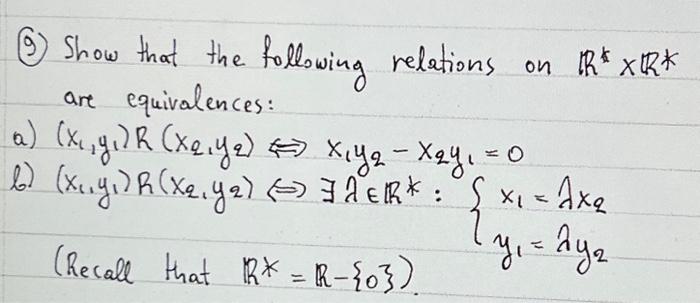 ⑨ Show that the following relations on ℝ* × ℝ*
are equivalences:
a) (x₁,y₁) R (x₂,y₂) ⟺ x₁y₂ - x₂y₁ = 0
b) (x₁,y₁) R (x₂,y₂) ⟺ ∃ λ ∈ ℝ* : { x₁ = λx₂
y₁ = λy₂
(Recall that ℝ* = ℝ - {0})